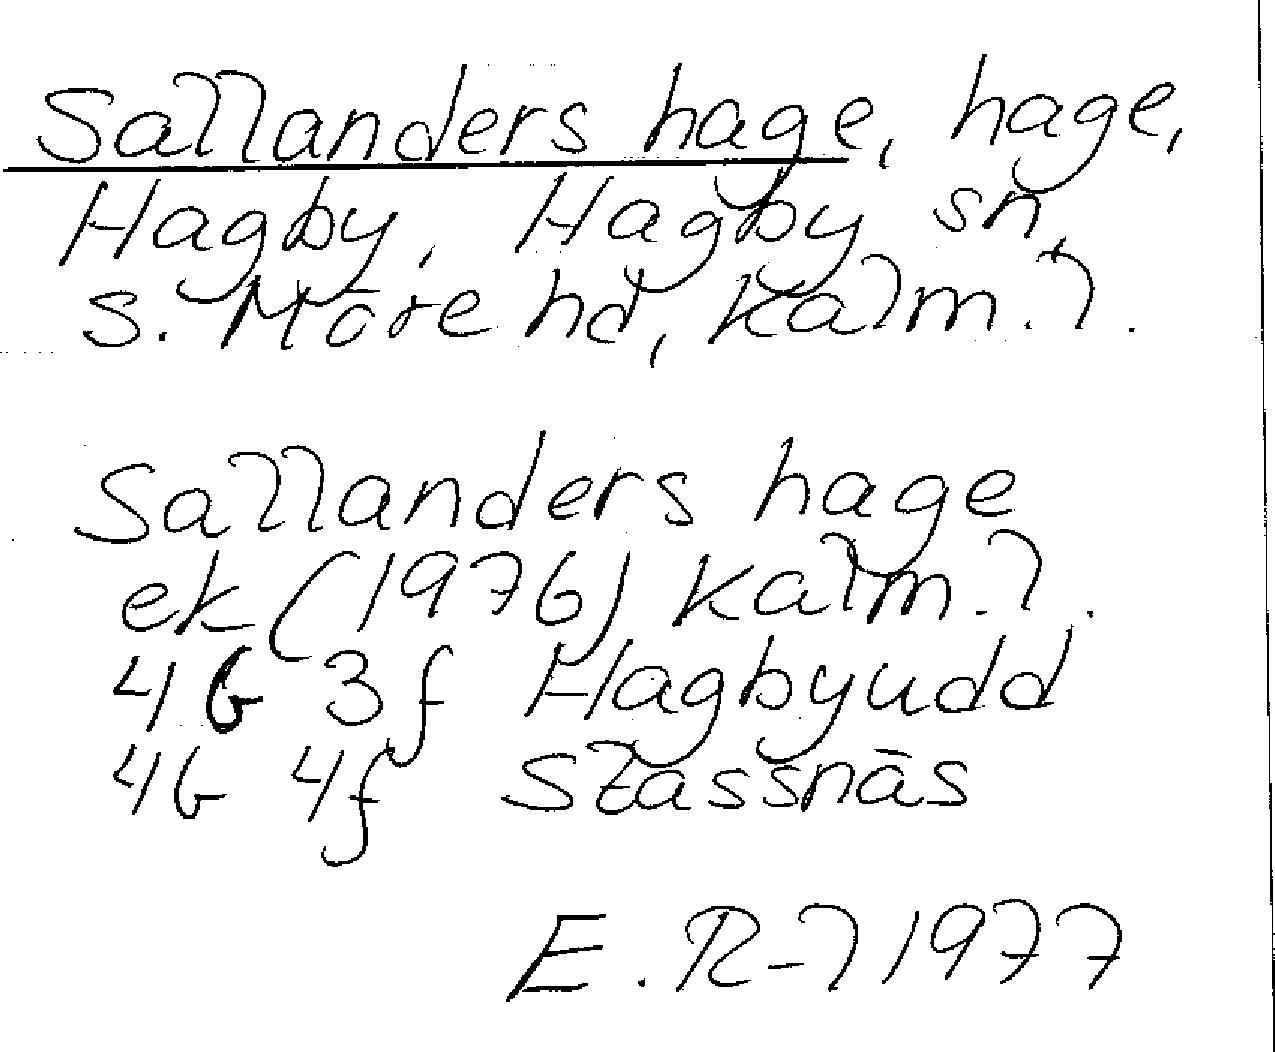 Sallanders hage, hage,
Hagby, Hagby sn,
S. Möre hd, Kalm. l.
Sallanders hage
ek (1976) Kalm. l.
4G 3f Hagbyudd
4G 4f Stassnäs
E. R-l 1977